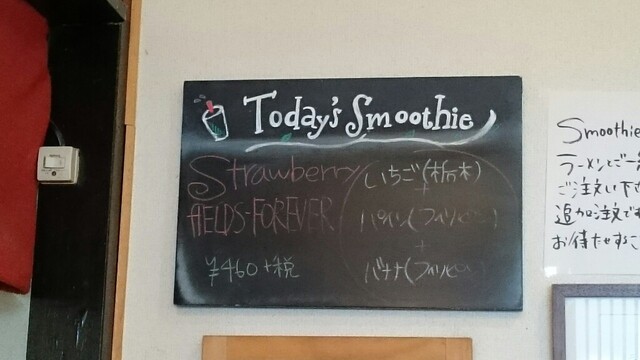 Today's Smoothie
Strawberry
FIELDS-FOREVER
¥460+税
いちご(栃木)
+
パイン(フィリピン)
+
バナナ(フィリピン)
Smoothie
ラーメンとご一
ご注文い下さ
追加注文でも
お待たせするこ